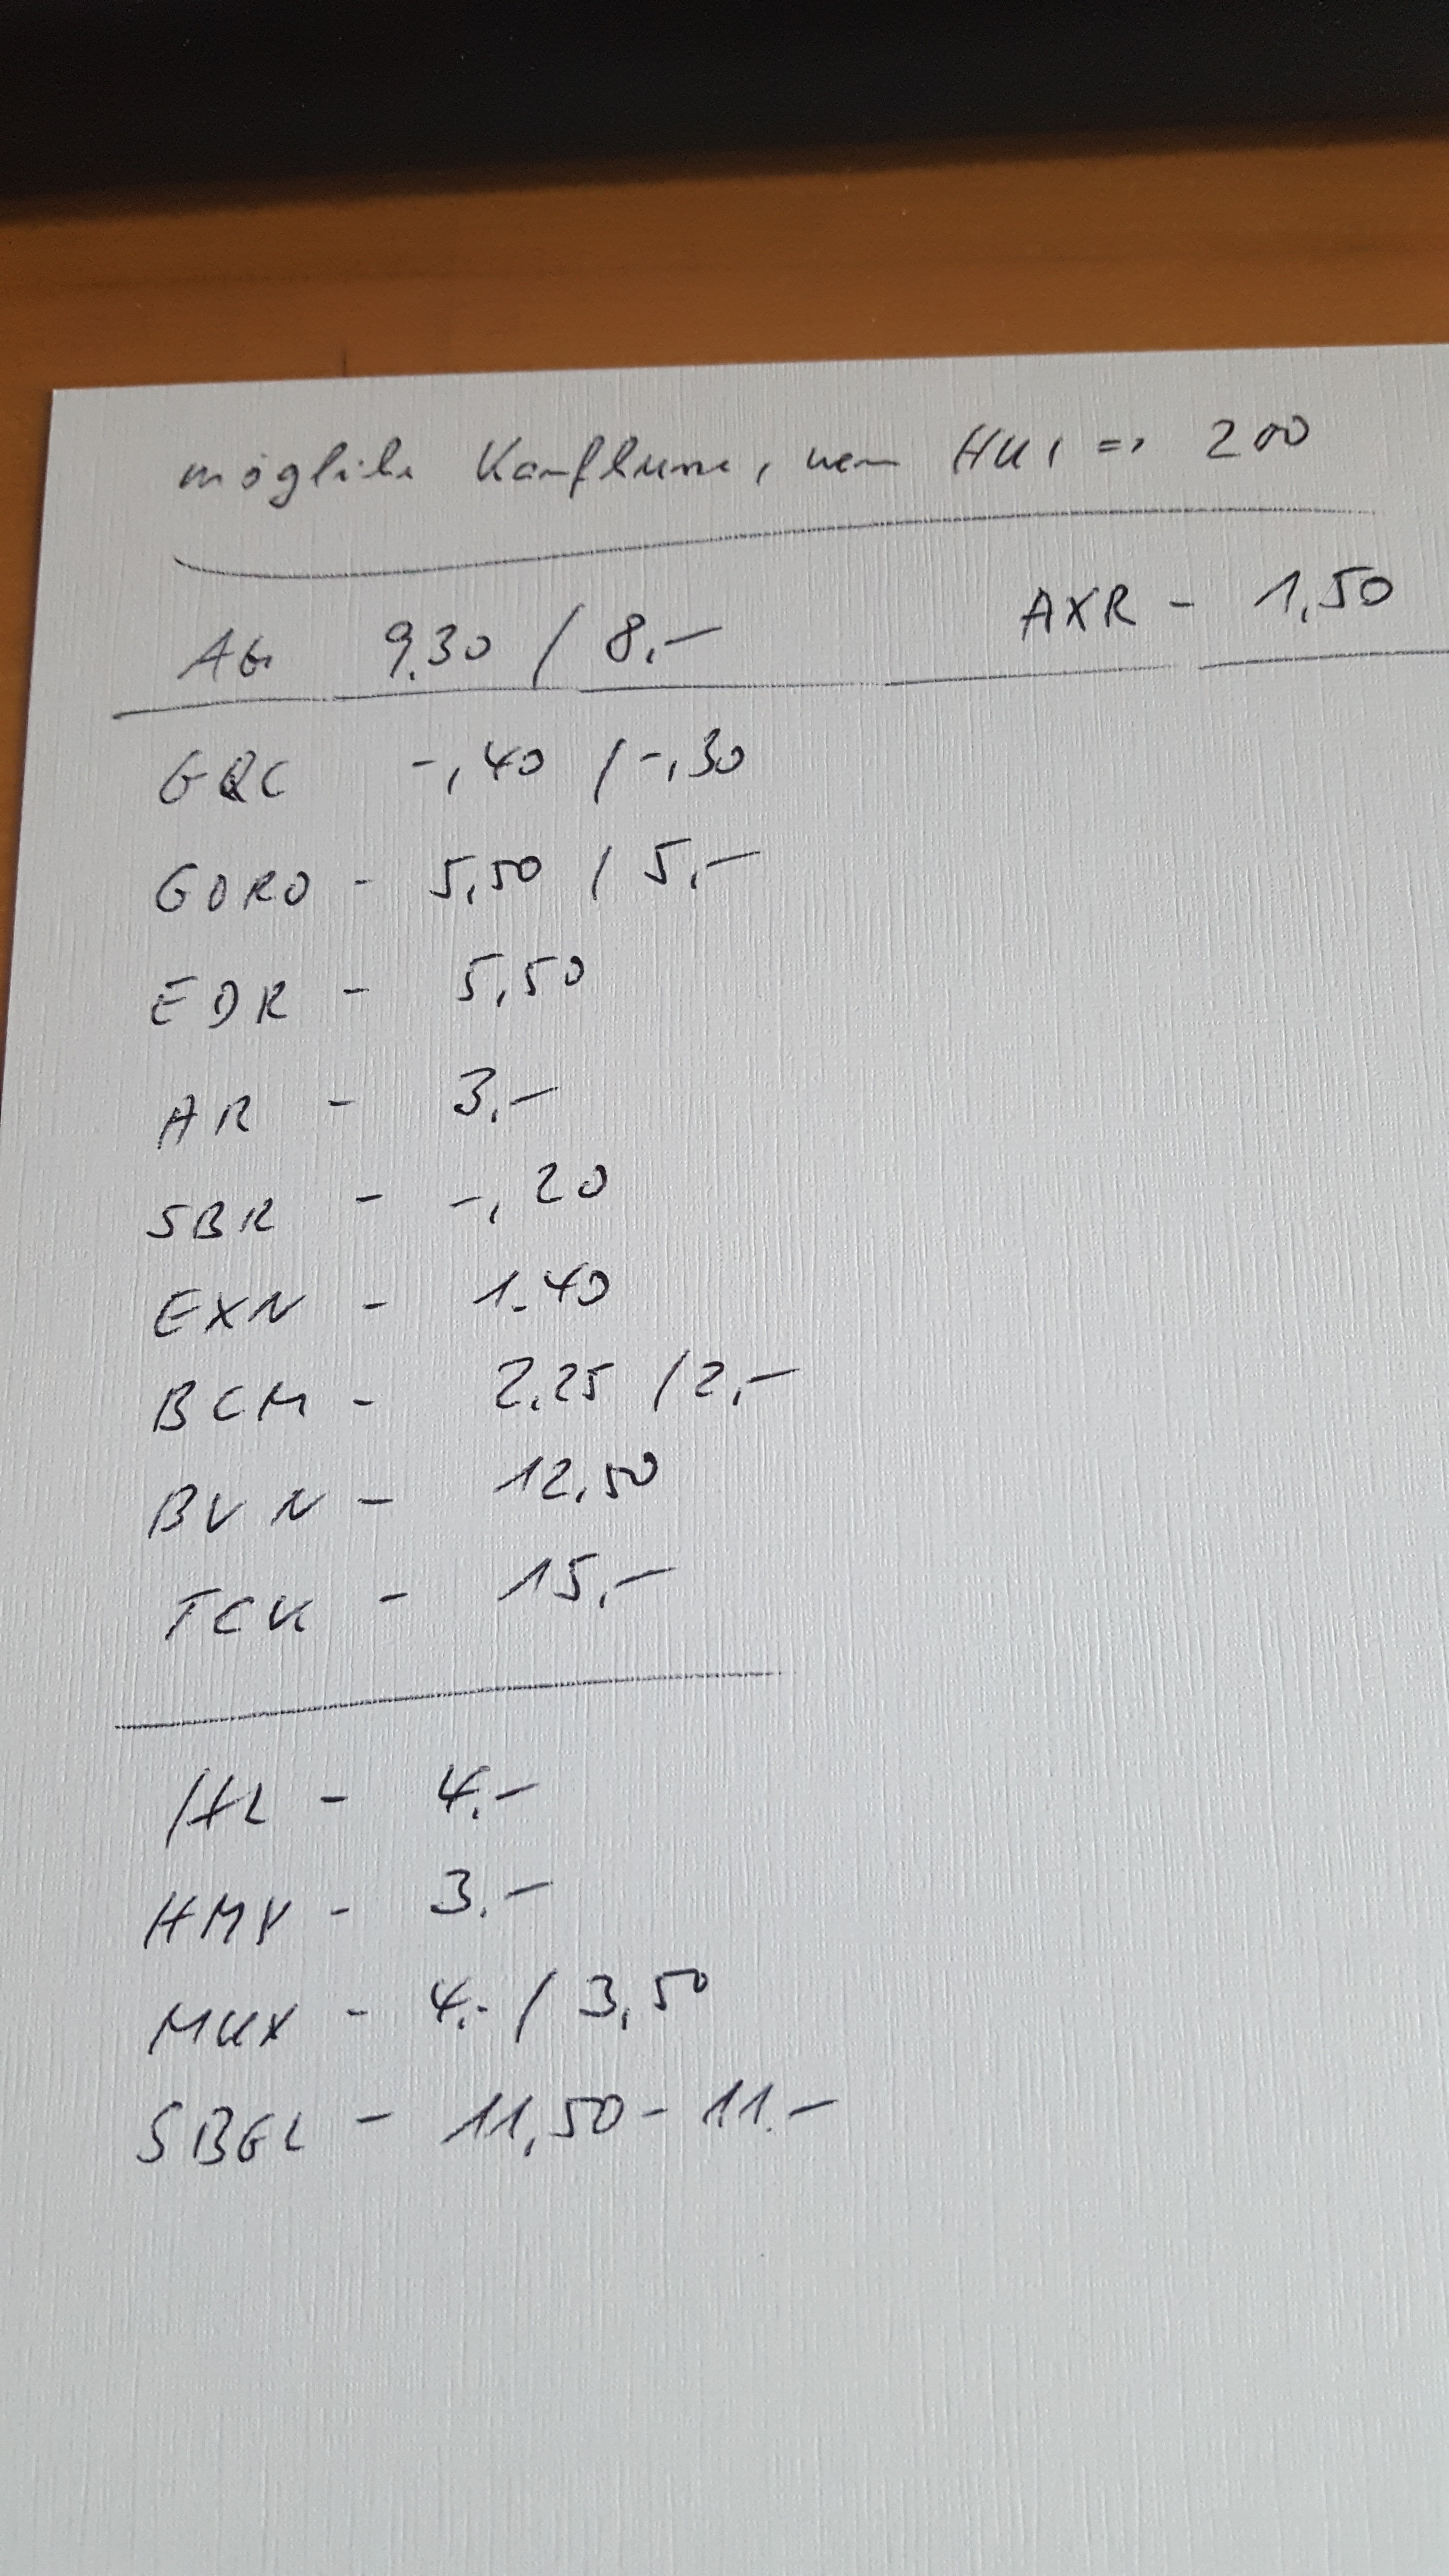 mögliche Kaufkurse, wenn HUI => 200
AG 9.30 / 8,- AXR - 1,50
GQC -,40 / -,30
GORO - 5,50 / 5,-
EDR - 5,50
AR - 3,-
SBR - -,20
EXN - 1.40
BCM - 2,25 / 2,-
BVN - 12,50
TCK - 15,-
HL - 4,-
HMY - 3,-
MUX - 4,- / 3,50
SBGL - 11,50 - 11.-